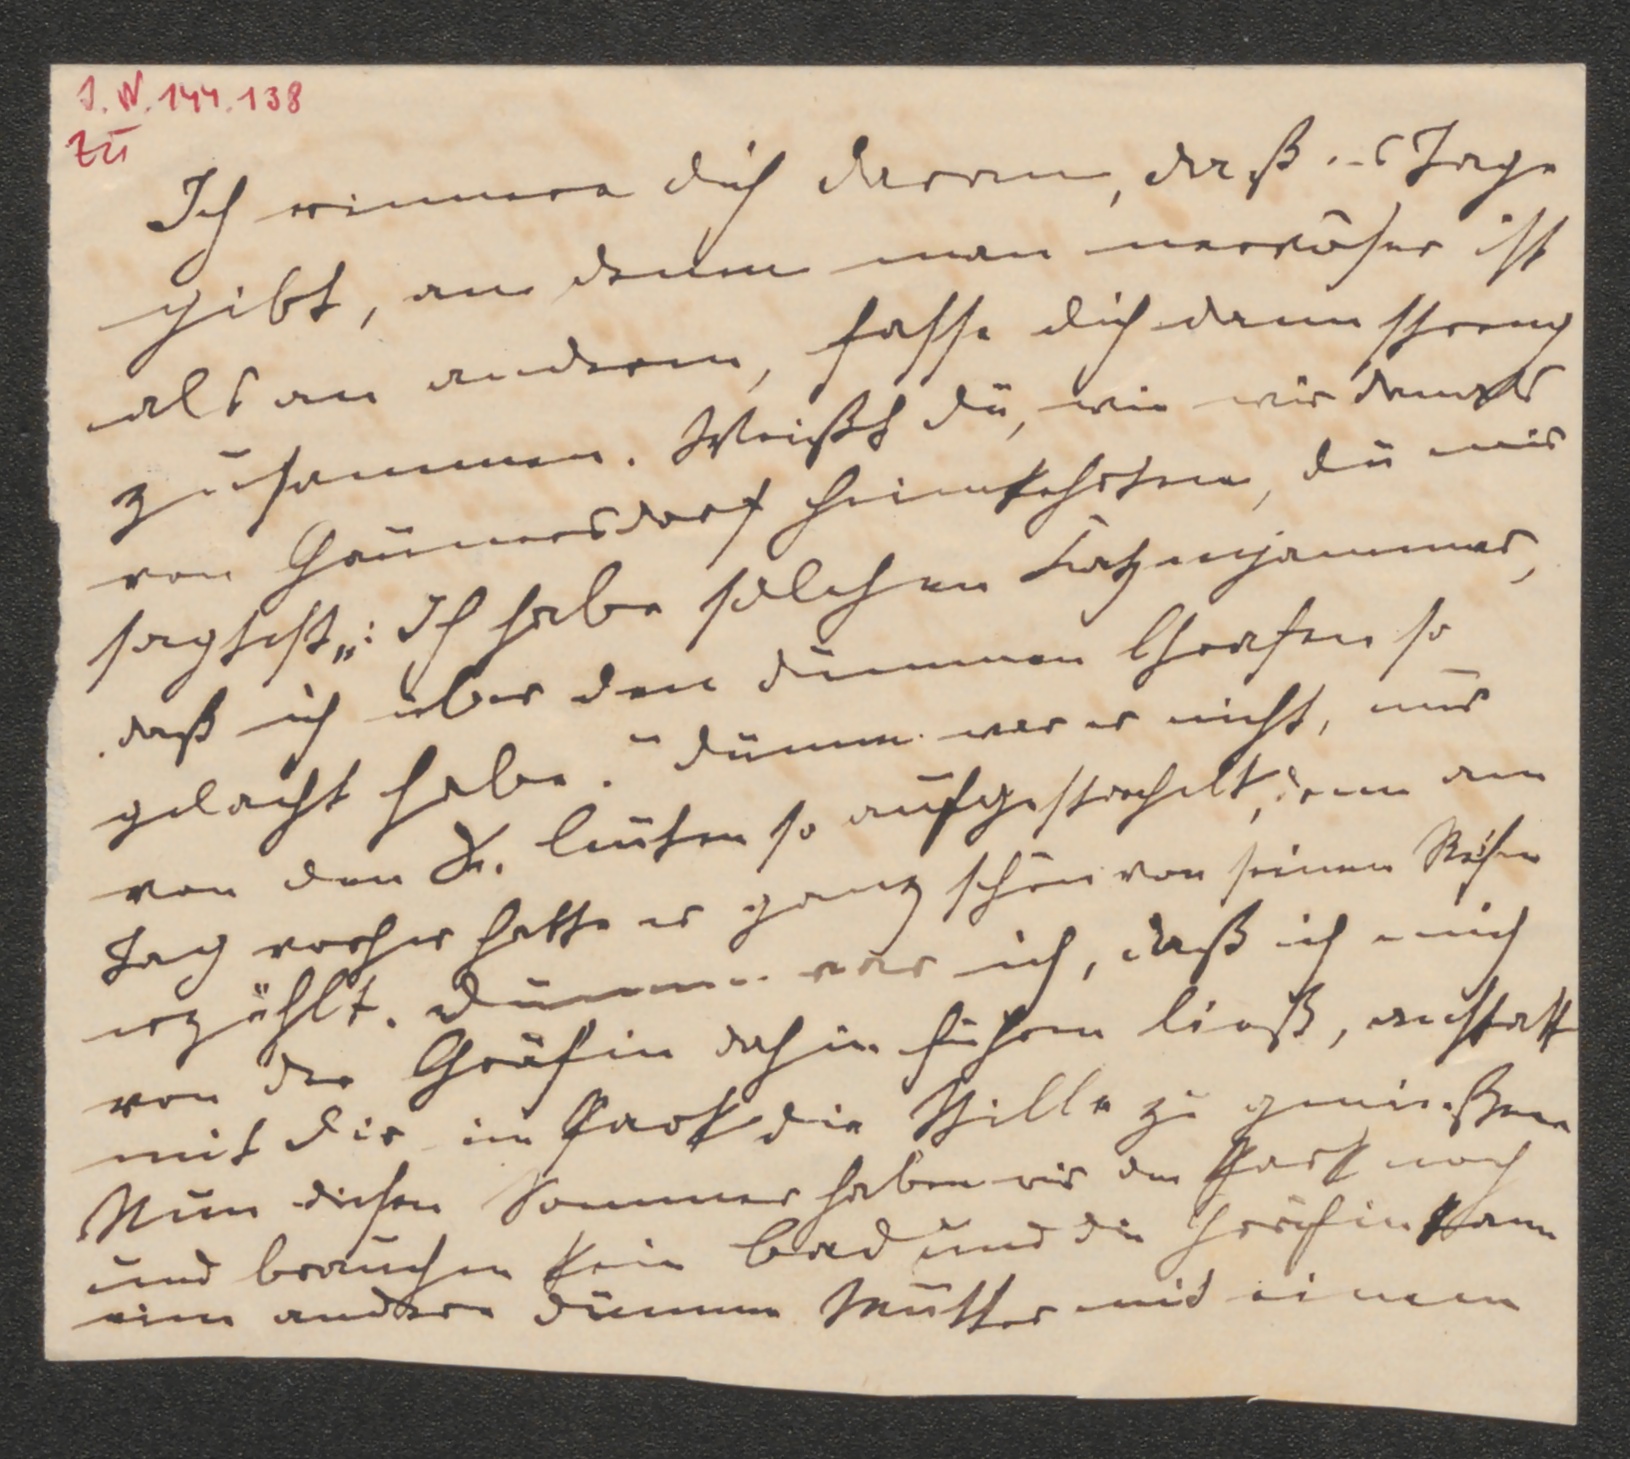 I. N. 144.138
Zu
Ich erinnere dich daran, daß es Tage
gibt, an denen man nervöser ist
als an andern, fasse dich dann streng
zusammen. Weißt du, wie wir damals
von Gaunersdorf heimkehrten, du mir
sagtest„: Ich habe solchen Katzenjammer,
daß ich über den dummen Grafen so
gelacht habe." Dumm war er nicht, nur
von den Leuten so aufgestachelt, denn am
Tag vorher hatte er ganz schön von seinen Reisen
erzählt. Dumm war ich, daß ich mich
von der Gräfin dahin führen ließ, anstatt
mit dir im Park die Stille zu genießen
Nun diesen Sommer haben wir den Park noch
und brauchen kein Bad und die Gräfin kann
eine andere dumme Mutter mit einem